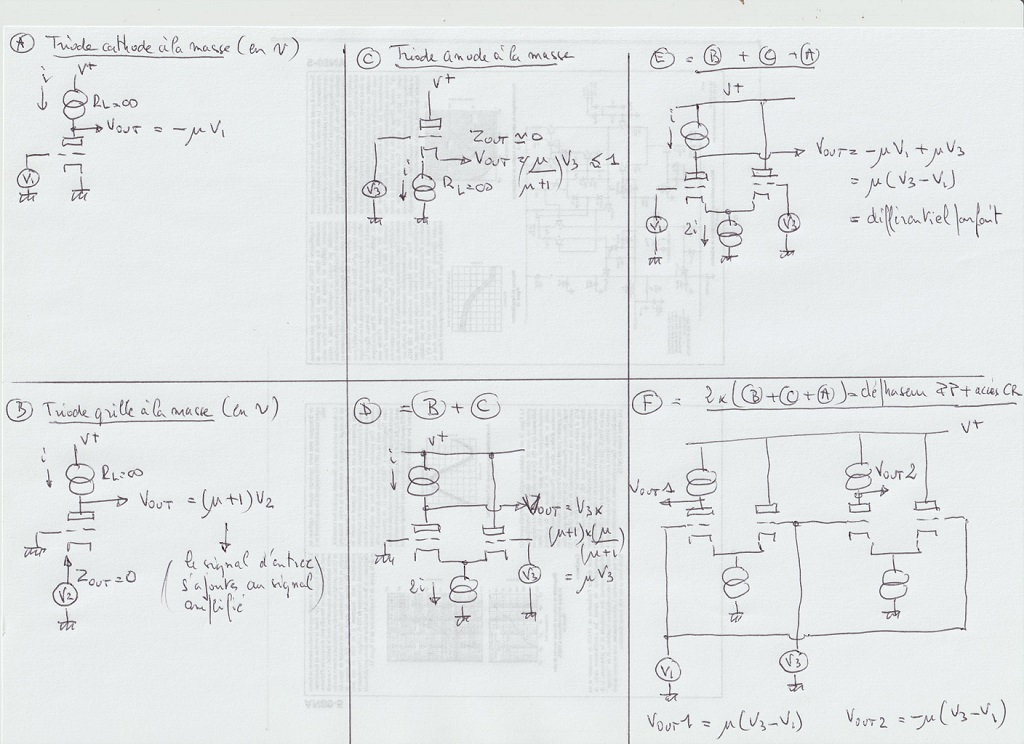 A Triode cathode à la masse (en V)
i
V+
RL=∞
VOUT = -μV1
V1
C Triode anode à la masse
V+
ZOUT ≃ 0
VOUT = (μ/μ+1)V3 ≤ 1
V3
i
RL=∞
E = B + C + A
V+
i
VOUT = -μV1 + μV3
= μ(V3-V1)
= différentiel parfait
V1
2i
V3
B Triode grille à la masse (en V)
i
V+
RL=∞
VOUT = (μ+1)V2
ZOUT=0
V2
(le signal d'entrée
s'ajoute au signal
amplifié)
D = B + C
V+
i
VOUT = V3x
(μ+1)x(μ/(μ+1)
= μV3
2i
V3
F = 2x(B+C+A)= déphaseur PP + accès CR
V+
VOUT1
VOUT2
V1
V3
VOUT1 = μ(V3-V1)
VOUT2 = -μ(V3-V1)